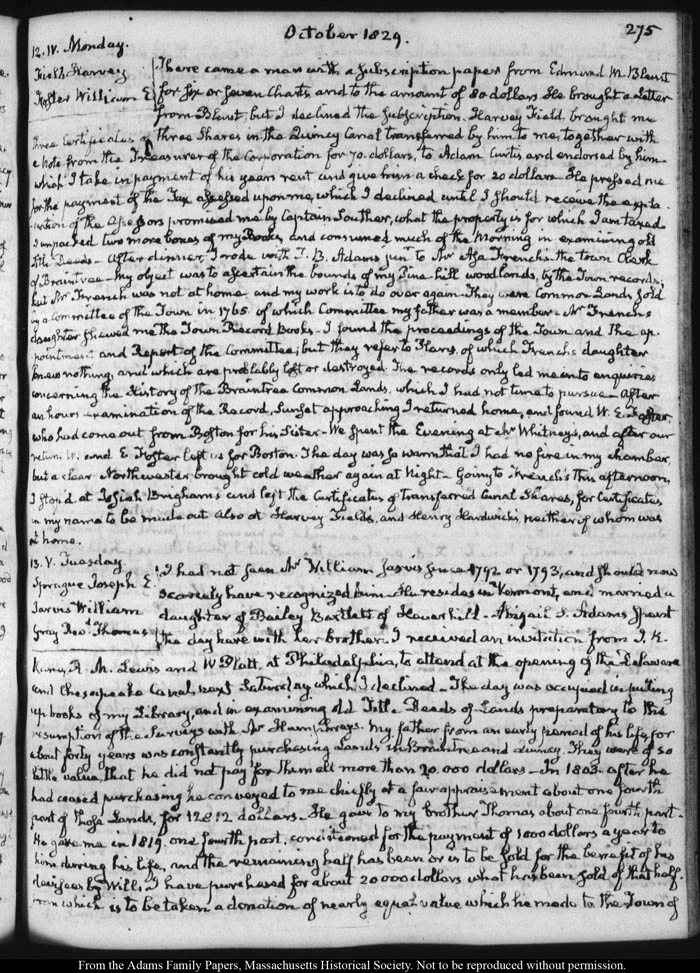 October 1829.
275
12. IV. Monday.
Field Harvey
Foster William E
There came a man with a subscription paper from Edmund M. Blunt
for six or seven Charts, and to the amount of 80 dollars. He brought a Letter
from Blunt, but I declined the subscription. Harvey Field brought me
three Certificates of three Shares in the Quincy Canal transferred by him to me, together with
a note from the Treasurer of the Corporation for 70. dollars, to Adam Curtis and endorsed by him
which I take in payment of his years rent and give him a check for 20 dollars. He pressed me
for the payment of the Tax assessed upon me, which I declined until I should receive the expla-
nation of the Assessors promised me by Captain Souther, what the property is for which I am taxed.
I unpacked two more boxes of my Books, and consumed much of the Morning in examining old
Title Deeds. After dinner, I rode with T. B. Adams junr. to Mr Asa French's the town Clerk
of Braintree. My object was to ascertain the bounds of my Pine hill woodlands, by the Town records;
but Mr French was not at home, and my work is to do over again. They were Common Lands sold
by a Committee of the Town in 1765. of which Committee my father was a member. Mr French's
daughter shewed me the Town Record Books. I found the proceedings of the Town and the ap-
pointment and Report of the Committee; but they refer to Plans, of which French's daughter
knew nothing, and which are probably lost or destroyed. The records only led me into enquiries
concerning the History of the Braintree Common Lands, which I had not time to pursue. After
an hours examination of the Record, Sunset approaching I returned home, and found W. E. Foster
who had come out from Boston for his Sister. We spent the Evening at Mr Whitney's, and after our
return W. and E Foster left us for Boston. The day was so warm that I had no fire in my chamber,
but a clear Northwester brought cold weather again at Night. Going to French's this afternoon,
I stop'd at Josiah Brigham's and left the Certificates of transferred Canal Shares, for Certificates
in my name to be made out. Also at Harvey Field's, and Henry Hardwick's, neither of whom was
at home.
13. V. Tuesday
Sprague Joseph E
Jarvis William
Gray Revd. Thomas
I had not seen Mr William Jarvis since 1792 or 1793, and should now
scarcely have recognized him. He resides in Vermont, and married a
daughter of Bailey Bartlett of Haverhill. Abigail S. Adams spent
the day here with her brother. I received an invitation from J. K.
Kane, R. M. Lewis and W Platt, at Philadelphia, to attend at the opening of the Delaware
and Chesapeake Canal, next Saturday, which I declined. The day was occupied in putting
up books of my Library, and in examining old Title Deeds of Lands preparatory to the
resumption of the Surveys with Mr Humphreys. My father from an early period of his life, for
about forty years was constantly purchasing Lands in Braintree and Quincy. They were of so
little value, that he did not pay for them all more than 20.000 dollars. In 1803. after he
had ceased purchasing he conveyed to me chiefly at a fair appraisement about one fourth
part of those Lands, for 12812 dollars. He gave to my brother Thomas about one fourth part.
He gave me in 1819. one fourth part, conditioned for the payment of 1000 dollars a year to
him during his life, and the remaining half has been or is to be sold for the benefit of his
devisees by Will. I have purchased for about 20000 dollars what has been sold of that half
from which is to be taken a donation of nearly equal value which he made to the Town of
From the Adams Family Papers, Massachusetts Historical Society. Not to be reproduced without permission.